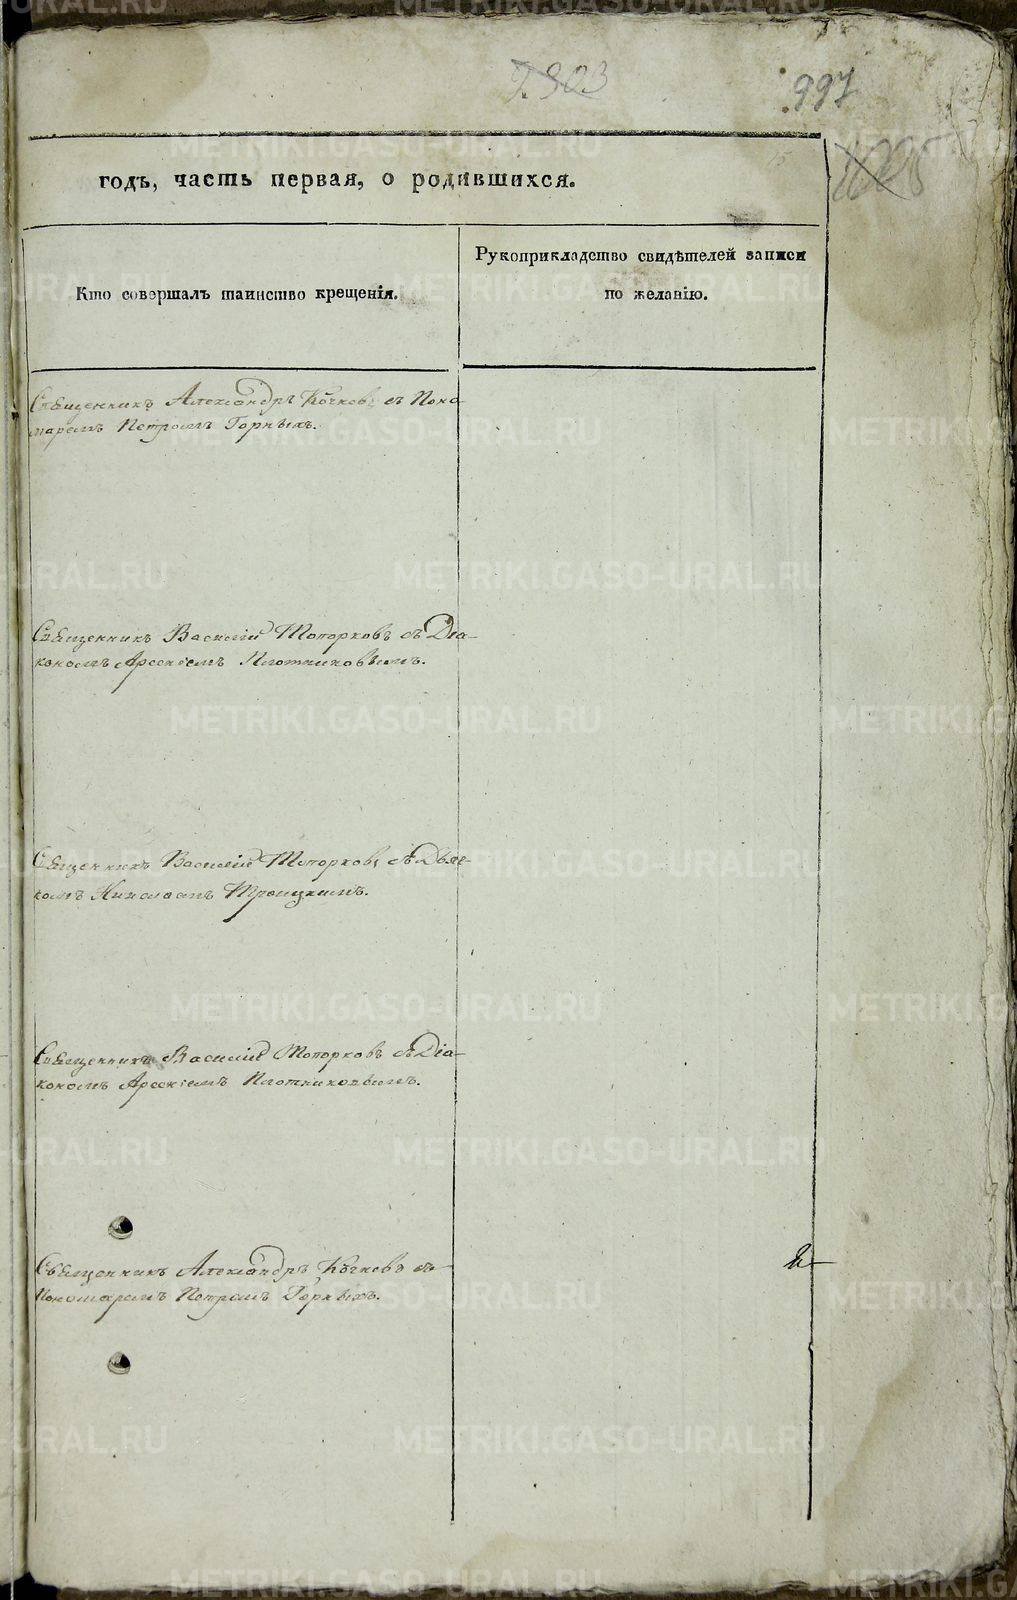 997
годъ, часть первая, о родившихся.
Кто совершалъ таинство крещенія.
Рукоприкладство свидѣтелей записи
по желанію.
Священникъ Александръ съ Поно-
маремъ Петромъ Горныхъ.
Священникъ Василій Топорковъ съ Діа-
кономъ Арсеніемъ Плотниковымъ.
Священникъ Василій Топорковъ съ Дьяч-
комъ Николаемъ Троицкимъ.
Священникъ Василій Топорковъ съ Діа-
кономъ Арсеніемъ Плотниковымъ.
Священникъ Александръ съ
Пономаремъ Петромъ Горныхъ.
METRIKI.GASO-URAL.RU